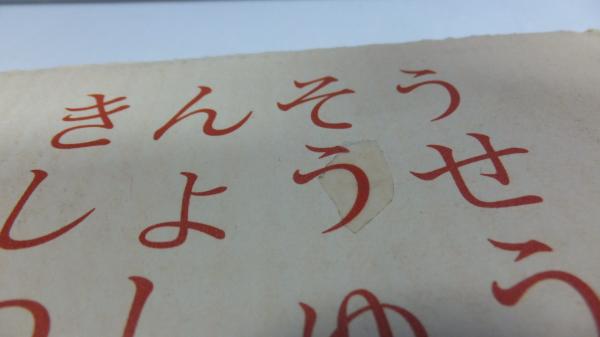 きんそう
しようせ
しゆう